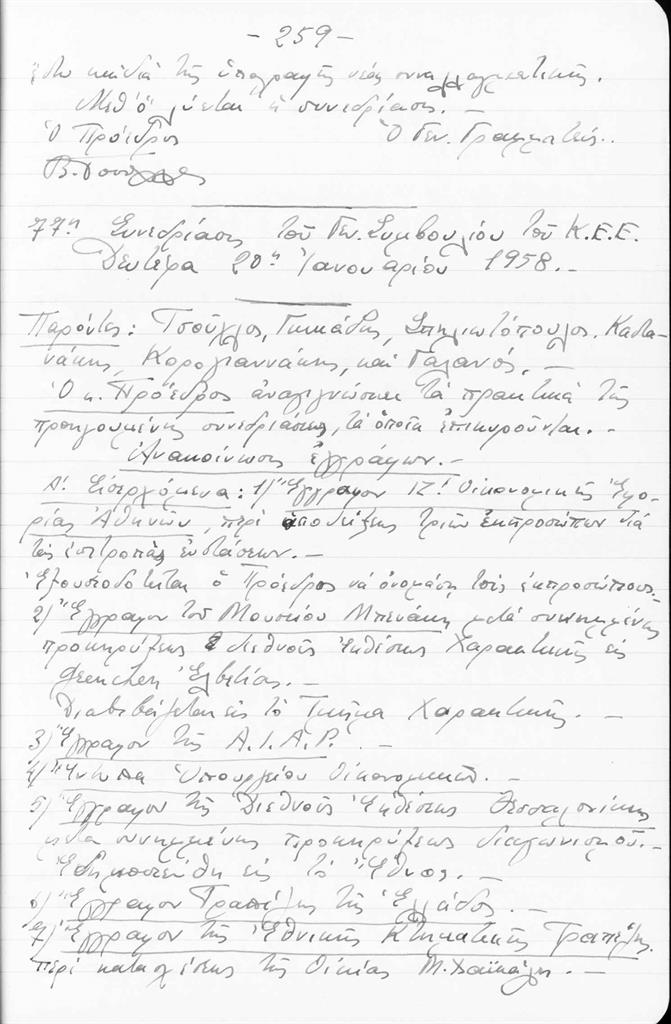 - 259 -
τῆς ὑπογραφῆς νέας συναλλαγματικῆς.
Μεθ' ὅ λύεται ἡ συνεδρίασις. -
Ὁ Πρόεδρος Ὁ Γεν. Γραμματεύς..
77η Συνεδρίασις τοῦ Γεν. Συμβουλίου τοῦ Κ.Ε.Ε.
Δευτέρα 20η Ἰανουαρίου 1958. -
Παρόντες: Τσοῦχλος, Γκικάδης, Σπηλιωτόπουλος, Καστα-
νάκης, Κορογιαννάκης, καὶ Γαλανός. -
Ὁ κ. Πρόεδρος ἀναγιγνώσκει τὰ πρακτικὰ τῆς
προηγουμένης συνεδριάσεως, τὰ ὁποῖα ἐπικυροῦνται. -
Ἀνακοίνωσις ἐγγράφων. -
Α! Εἰσερχόμενα: 1) Ἔγγραφον ΙΖ! Οἰκονομικῆς Ἐφο-
ρίας Ἀθηνῶν, περὶ ὑποδείξεως τριῶν ἐκπροσώπων διὰ
τὰς ἐπιτροπὰς ἐνστάσεων. -
Ἐξουσιοδοτεῖται ὁ Πρόεδρος νὰ ὀνομάσῃ τοὺς ἐκπροσώπους.
2) Ἔγγραφον τοῦ Μουσείου Μπενάκη μετὰ συνημμένης
προκηρύξεως διεθνοῦς ἐκθέσεως Χαρακτικῆς εἰς
Grenchen Ἑλβετίας. -
Διαβιβάζεται εἰς τὸ Τμῆμα Χαρακτικῆς. -
3) Ἔγγραφον τῆς A.I.A.P. -
4) Ἔντυπα Ὑπουργείου Οἰκονομικῶν. -
5) Ἔγγραφον τῆς Διεθνοῦς Ἐκθέσεως Θεσσαλονίκης
μετὰ συνημμένης προκηρύξεως διαγωνισμοῦ. -
Ἐδημοσιεύθη εἰς τὸ "Ἔθνος. -
6) Ἔγγραφον Τραπέζης τῆς Ἑλλάδος. -
7) Ἔγγραφον τῆς Ἐθνικῆς Κτηματικῆς Τραπέζης.
περὶ κατασχέσεως τῆς οἰκίας Μ. Χαϊκάλη. -